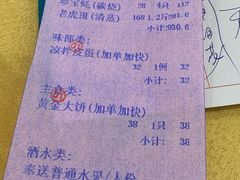 珍宝蛏(碳烧) 28 4只 112
老虎斑(清蒸) 168 1.2斤201.6
小计:930.6
味部类:
凉拌皮蛋(加单加快)
32 1例 32
小计: 32
主食类:
黄金大饼(加单加快)
38 1只 38
小计: 38
酒水类:
奉送普通水果/人份